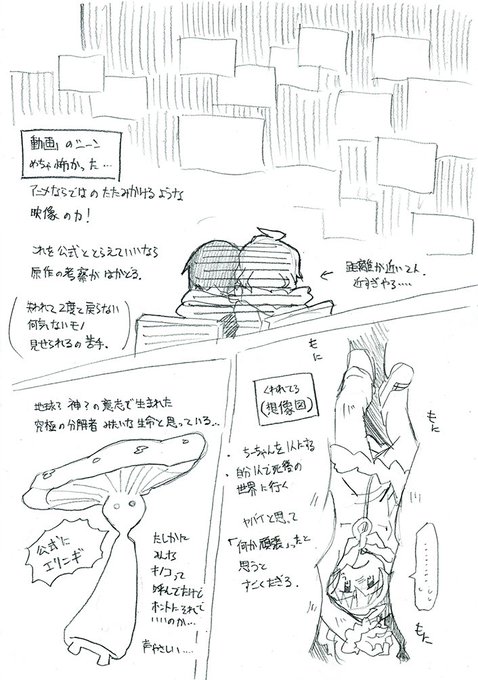 「動画」のシーン
めちゃ怖かった…
アニメならではのたたみかけるような
映像の力！
これを公式ととらえていいなら
原作の考察がはかどる。
失われて2度と戻らない
何気ないモノ
見せられるの苦手。
← 距離が近いてん
近すぎやろ….
地球で神々の意志で生まれた
究極の分解者みたいな生命と思っている…
公式に
エリンギ
たしかに
みんな
キノコって
呼んでたけど
ホントにそれで
いいのか…
声やさしい….
くわれてる
(想像図)
・ちーちゃんを1人にする
・自分1人で死後の
世界に行く
ヤバイと思って
「何か頑張」ったと
思うと
すごくたぎる。
もに
もに
もに
もに